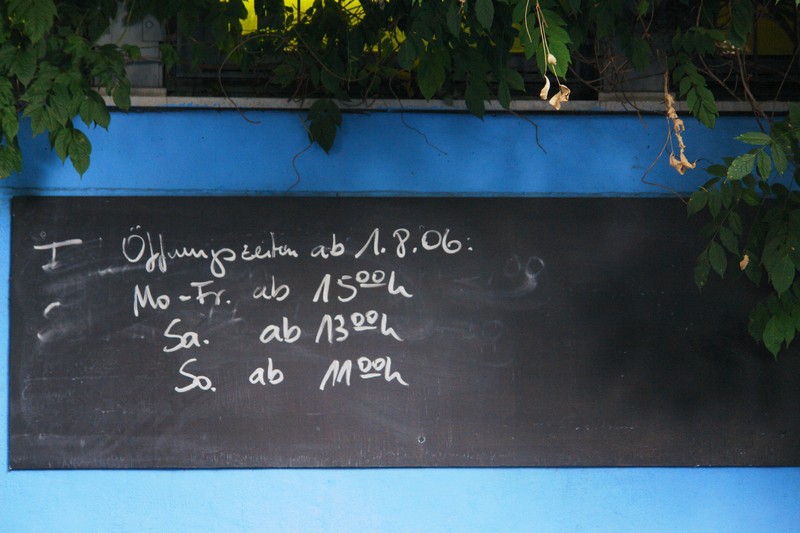 Öffnungszeiten ab 1.8.06:
Mo-Fr. ab 15 00 h
Sa. ab 13 00 h
So. ab 11 00 h